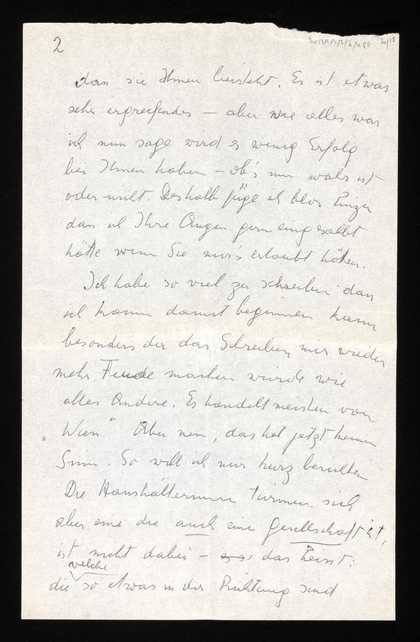 2
dass sie Ihnen beisteht. Es ist etwas
sehr ergreifendes — aber wie alles was
ich nun sage wird es wenig Erfolg
bei Ihnen haben — ob's nun wahr ist
oder nicht. Deshalb füge ich blos hinzu
dass ich Ihre Augen gern
hätte wenn Sie mir's erlaubt hätten.
Ich habe so viel zu schreiben dass
ich kaum damit beginnen kann
besonders da das Schreiben mir wieder
mehr Freude machen würde wie
alles Andere. Es handelt meistens von
"Wien". Aber nein, das hat jetzt keinen
Sinn. So will ich nur kurz berichten
Die Haushälterinnen türmen sich
aber eine die auch eine Gesellschaft ist,
ist nicht dabei — das heisst:
die welche so etwas in der Richtung sind